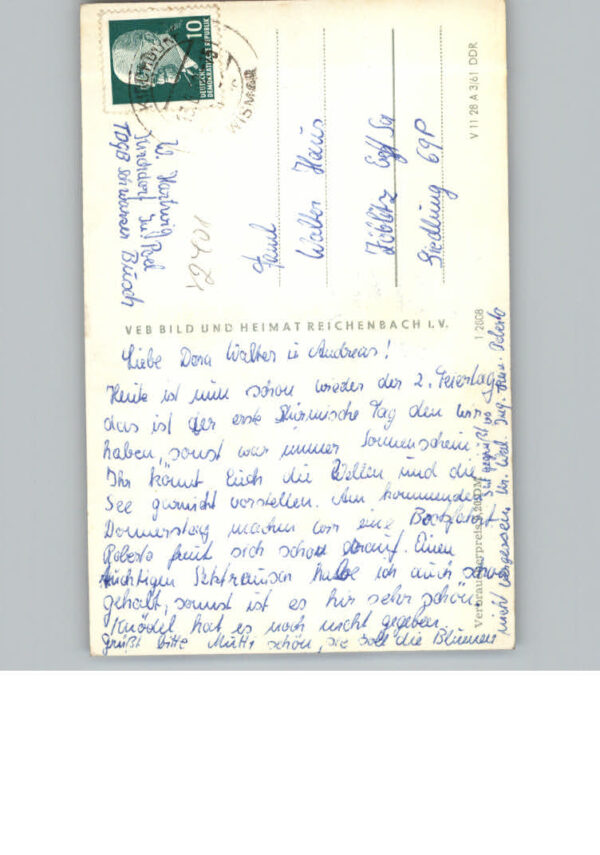 10
DEUTSCHE
DEMOKRATISCHE REPUBLIK
WISMAR
V 11 28 A 3/61 DDR
W. Hartwig
Kirchdorf Insel Poel
Schwarzer Busch
12401
Famil
Walter Haus
Zöblitz Erzg
Siedlung 69P
VEB BILD UND HEIMAT REICHENBACH I.V.
1 2608
Verbraucherpreis 0,20 DM
Liebe Dora Walter u Andreas!
Heute ist nun schon wieder der 2. Feiertag
das ist der erste Stürmische Tag den wir
haben, sonst war immer Sonnenschein.
Ihr könnt Euch die Wellen und die
See garnicht vorstellen. Am kommenden
Donnerstag machen wir eine Bootsfahrt
Roberto freut sich schon drauf. Einen
tüchtigen habe ich auch schon
gehabt, sonst ist es hir sehr schön.
Knödel hat es noch nicht gegeben.
Grüßt bitte Mutti schön, sie soll die Blumen
nicht vergessen.
Seit gegrüßt von
Roberto